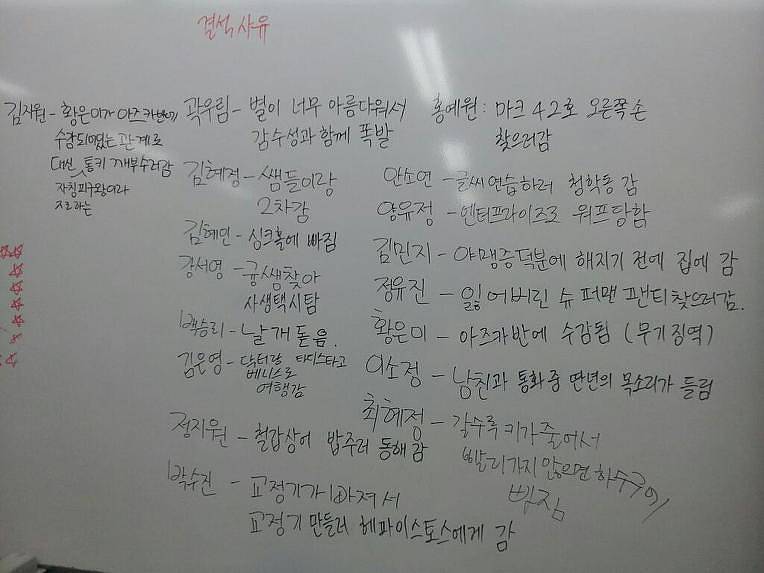 결석 사유
김지원 - 황은이가 아즈카반에
수감되어있는 관계로
대신 통키 깨부수러감
자칭피구왕이라
지르라는
곽우림 - 별이 너무 아름다워서
감수성과 함께 폭발
김혜정 - 쌤들이랑
2차감
김혜인 - 싱크홀에 빠짐
강서영 - 귱쌤찾아
사생택시탐
백승리 - 날개 돋음.
김은영 - 닥터랑 타디스타고
베니스로
여행감
정지원 - 철갑상어 밥주러 동해감
박수진 - 교정기가 빠져서
교정기 만들러 헤파이스토스에게 감
홍예원 : 마크 42호 오른쪽 손
찾으러감
안소연 - 글씨연습하러 청학동 감
양유정 - 엔터프라이즈로 워프당함
김민지 - 야맹증덕분에 해지기 전에 집에 감
정유진 - 잃어버린 슈퍼맨 팬티찾으러감.
황은미 - 아즈카반에 수감됨 (무기징역)
이소정 - 남친과 통화 중 딴년의 목소리가 들림
최혜정 - 갈수록 키가 줄어서
빨리가지 않으면 하수구에
빠짐